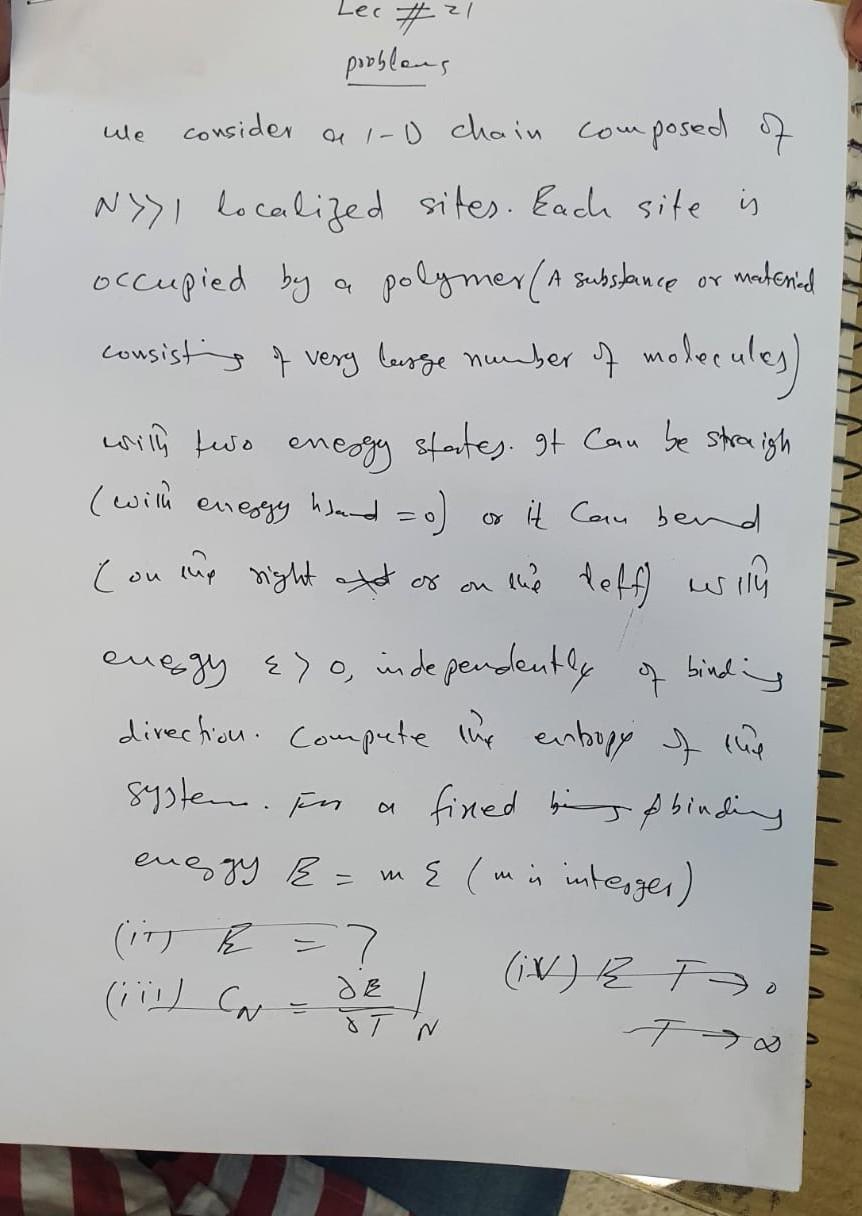 Lec # 21
problems
We consider a 1-D chain composed of
N>>1 localized sites. Each site is
occupied by a polymer (A substance or material
consisting of very large number of molecules)
with two energy states. It can be straigh
(with energy = 0) or it can bend
(on the right or on the left) with
energy ε > 0, independently of binding
direction. Compute the entropy of the
system. For a fixed binding
energy E = m ε (m is interger)
(ii) E = ?
(iii) C_N = ∂E/∂T |_N
(iv) E T → 0
T → ∞